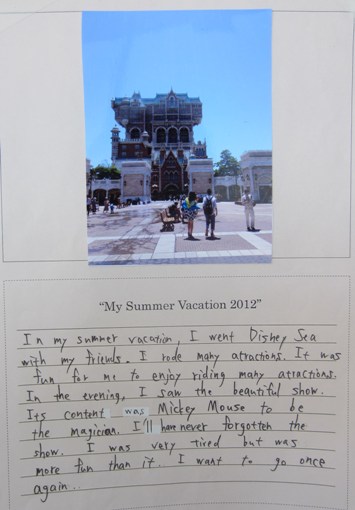 "My Summer Vacation 2012"
In my summer vacation, I went Disney Sea
with my friends. I rode many atractions. It was
fun for me to enjoy riding many atractions.
In the evening, I saw the beautiful show.
Its content was Mickey Mouse to be
the magician. I'll have never forgotten the
show. I was very tired but was
more fun than it. I want to go once
again..